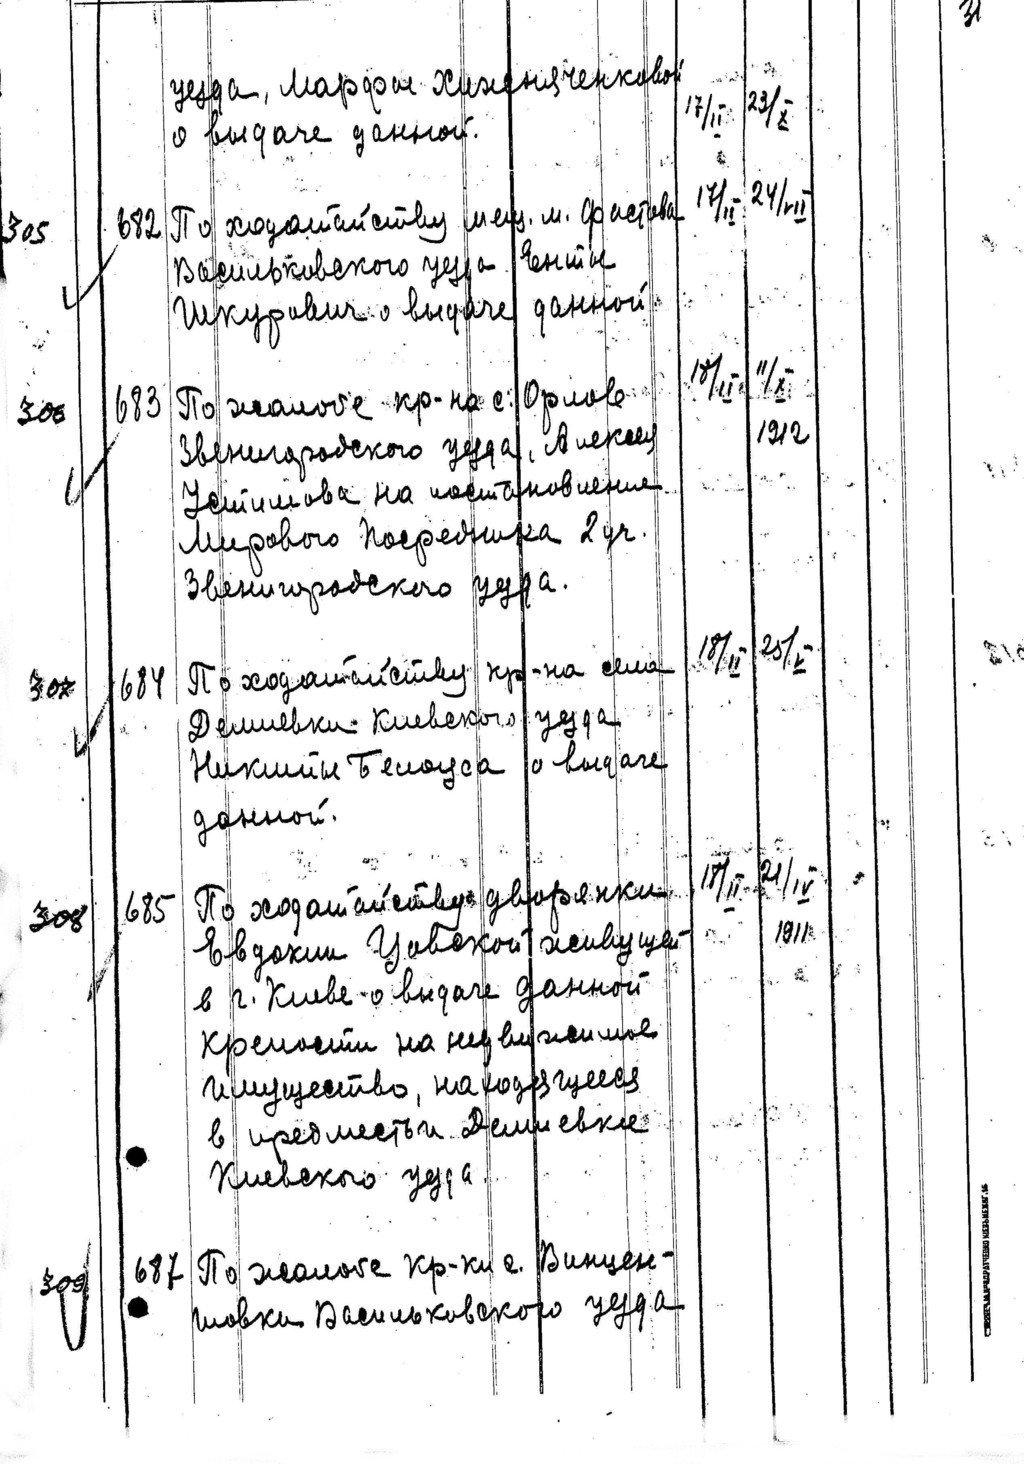 31
уезда, Марфы Хиженяченковой 17/II 23/X
о выдаче данной.
305 682 По ходатайству мещ. м. Фастова 17/II 24/VII
Васильковского уезда Енты
Шкурович о выдаче данной
306 683 По жалобе кр-на с. Орлове 18/II 11/X
Звенигородского уезда, Алексея 1912
Устимова на постановление
Мирового Посредника 2 уч.
Звенигородского уезда.
307 684 По ходатайству кр-на села 18/II 25/V
Демиевки Киевского уезда
Никиты Белоуса о выдаче
данной.
308 685 По ходатайству дворянки 18/II 21/IV
Евдокии живущей 1911
в г. Киеве о выдаче данной
крепости на недвижимое
имущество, находящееся
в предместьи Демиевке
Киевского уезда
309 687 По жалобе кр-ки с. Винцен-
товки Васильковского уезда